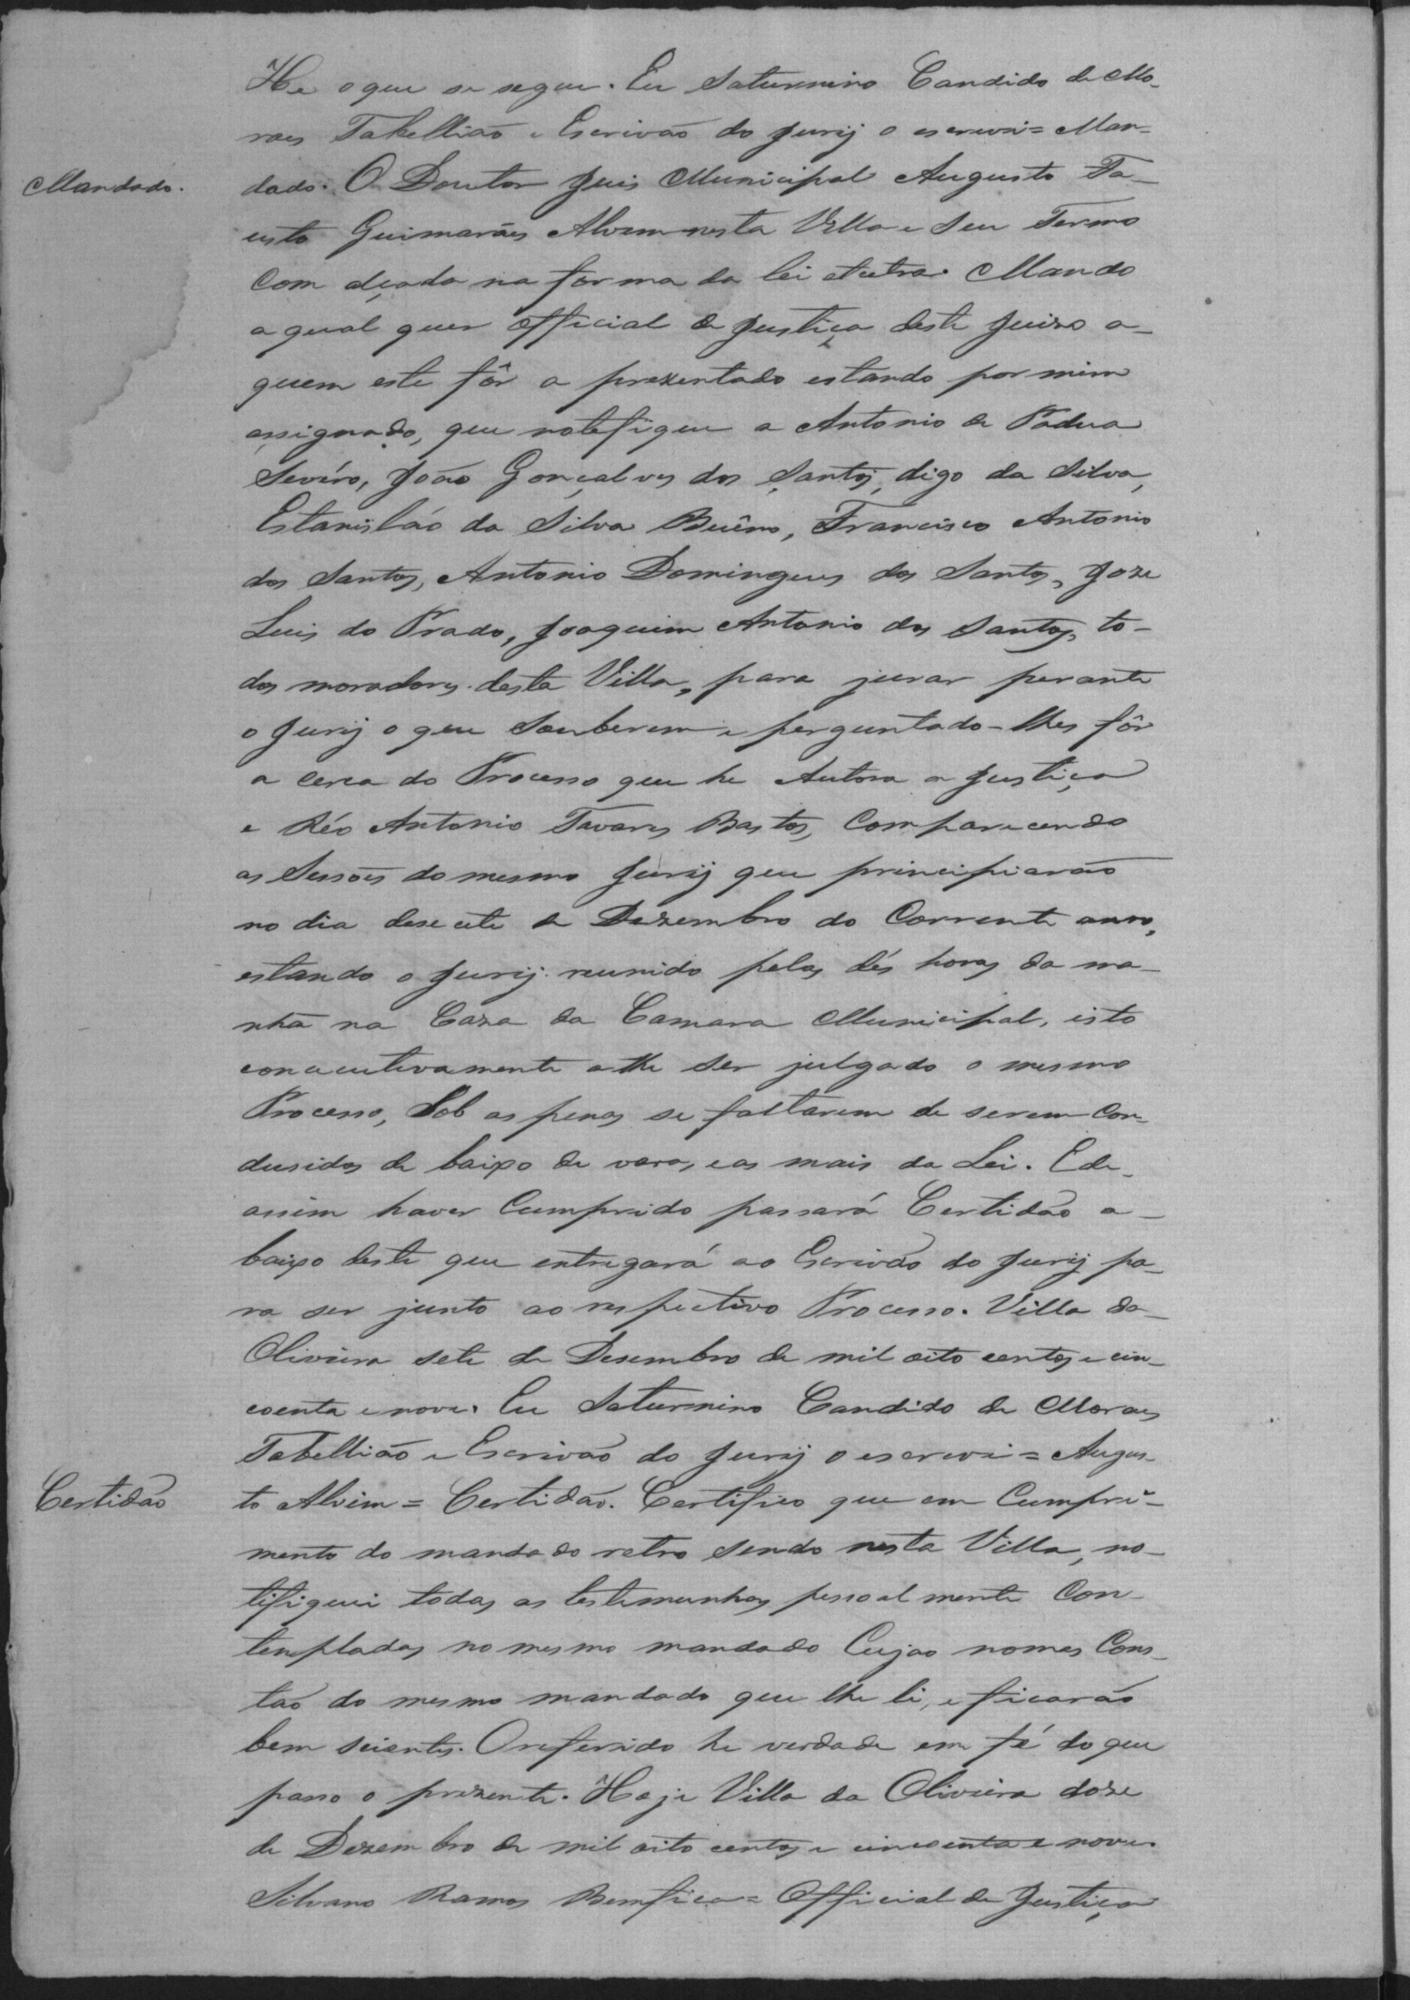 He o que se segue. Eu Saturnino Candido de Mo-
raes Tabellião e Escrivão do Jury o escrevi = Man-
Mandado.
dado. O Doutor Juis Municipal Augusto Fa-
usto Guimarães Alvim nesta Villa e seu Termo
com alçada na forma da lei etcetra. Mando
a qual quer official de Justiça deste Juizo a-
quem este fôr a prezentado estando por mim
assignado, que notefique a Antonio de Padua
Sevéro, João Gonçalves dos Santos, digo da Silva,
Estanisláo da Silva Buêno, Francisco Antonio
dos Santos, Antonio Domingues dos Santos, Joze
Luis do Prado, Joaquim Antonio dos Santos, to-
dos moradores desta Villa, para jurar perante
o Jury o que souberem e perguntado-lhes fôr
a cerca do Processo que he Autora a Justiça
e Réo Antonio Tavares Bastos, comparecendo
as Sessões do mesmo Jury que principiarão
no dia desecete de Dezembro do Corrente anno,
estando o Jury reunido pelas dés horas da ma-
nhã na Caza da Camara Municipal, isto
concecutivamente athe ser julgado o mesmo
Processo, Sob as penas se faltarem de serem con-
dusidos de baixo de vara, e as mais da Lei. E de
assim haver Cumprido passará Certidão a-
baixo deste que entregará ao Escrivão do Jury pa-
ra ser junto ao respectivo Processo. Villa da
Oliveira sete de Desembro de mil oito centos e cin-
coenta e nove. Eu Saturnino Candido de Moraes
Tabellião e Escrivão do Jury o escrevi = Augus-
Certidão
to Alvim = Certidão. Certifico que em Cumpri-
mento do mandado retro sendo nesta Villa, no-
tifiquei todas as testemunhas pessoal mente Con-
templadas no mesmo mandado Cujao nomes Cons-
tão do mesmo mandado que lhe li, e ficarão
bem scientes. O referido he verdade em fé do que
passo o prezente. Hoje Villa da Oliveira doze
de Dezembro de mil oito centos e cincoenta e nove.
Silvano Ramos Bemfica = Official de Justiça